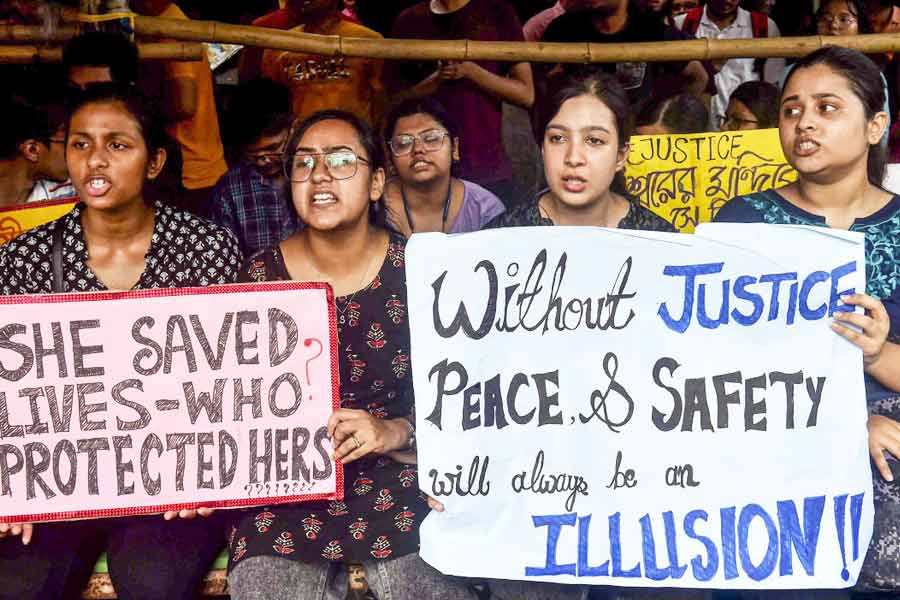 SHE SAVED ?
LIVES-WHO
PROTECTED HERS
????????
Without JUSTICE
PEACE, & SAFETY
will always be an
ILLUSION!!
JUSTICE
শ্বরের মন্দি